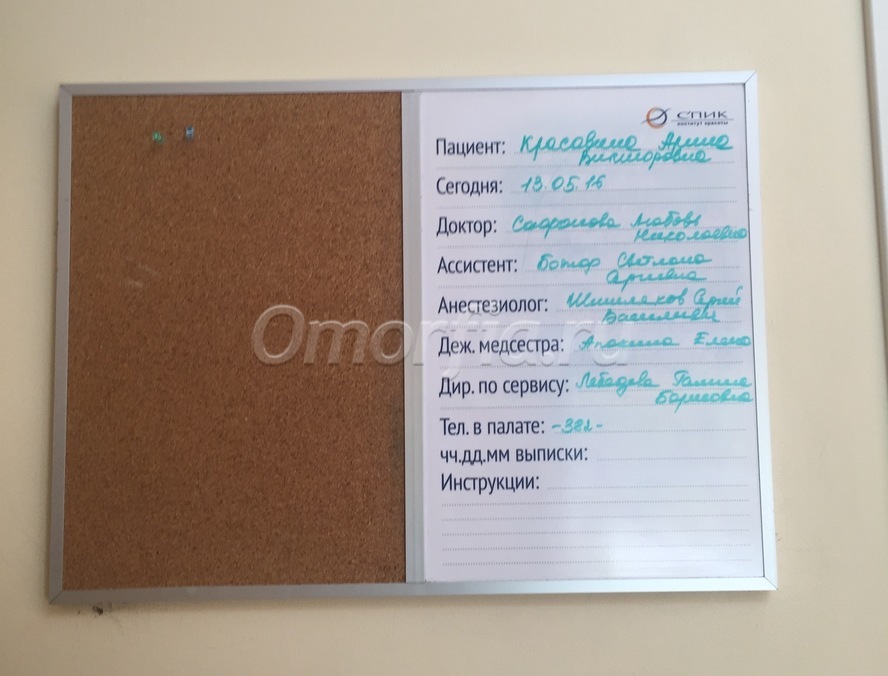 СПИК
институт красоты
Пациент: Красавина Арина
Викторовна
Сегодня: 13.05.16
Доктор: Сафронова Любовь
Николаевна
Ассистент: Ботор Светлана
Сергеевна
Анестезиолог: Шишлаков Сергей
Васильевич
Omorfia.ru
Деж. медсестра: Апакина Елена
Дир. по сервису: Лебедева Галина
Борисовна
Тел. в палате: -382-
чч.дд.мм выписки:
Инструкции: